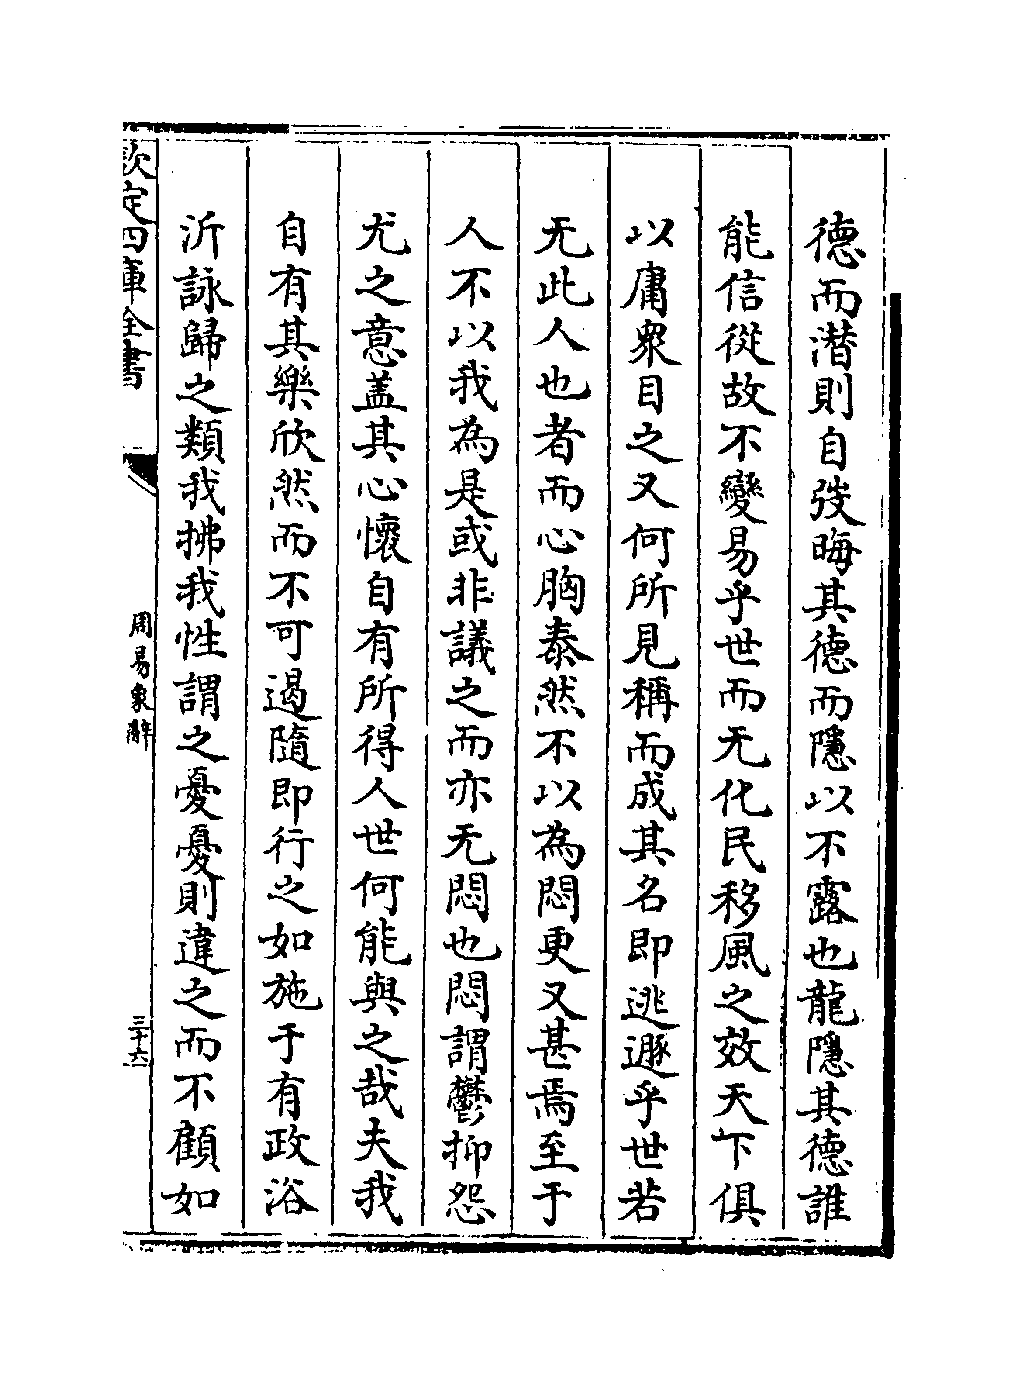 德而潜則自弢晦其德而隱以不露也龍隱其德誰
能信從故不變易乎世而无化民移風之效天下俱
以庸衆目之又何所見稱而成其名即逃遯乎世若
无此人也者而心胸泰然不以為悶更又甚焉至于
人不以我為是或非議之而亦无悶也悶謂鬱抑怨
尤之意盖其心懷自有所得人世何能與之哉夫我
自有其樂欣然而不可遏隨即行之如施于有政浴
沂詠歸之類我拂我性謂之憂憂則違之而不顧如
欽定四庫全書
周易象辭
三十六